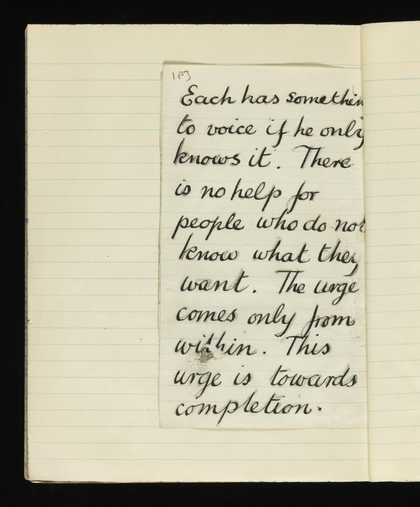 Each has somethin
to voice if he only
knows it. There
is no help for
people who do not
know what they
want. The urge
comes only from
within. This
urge is towards
completion.